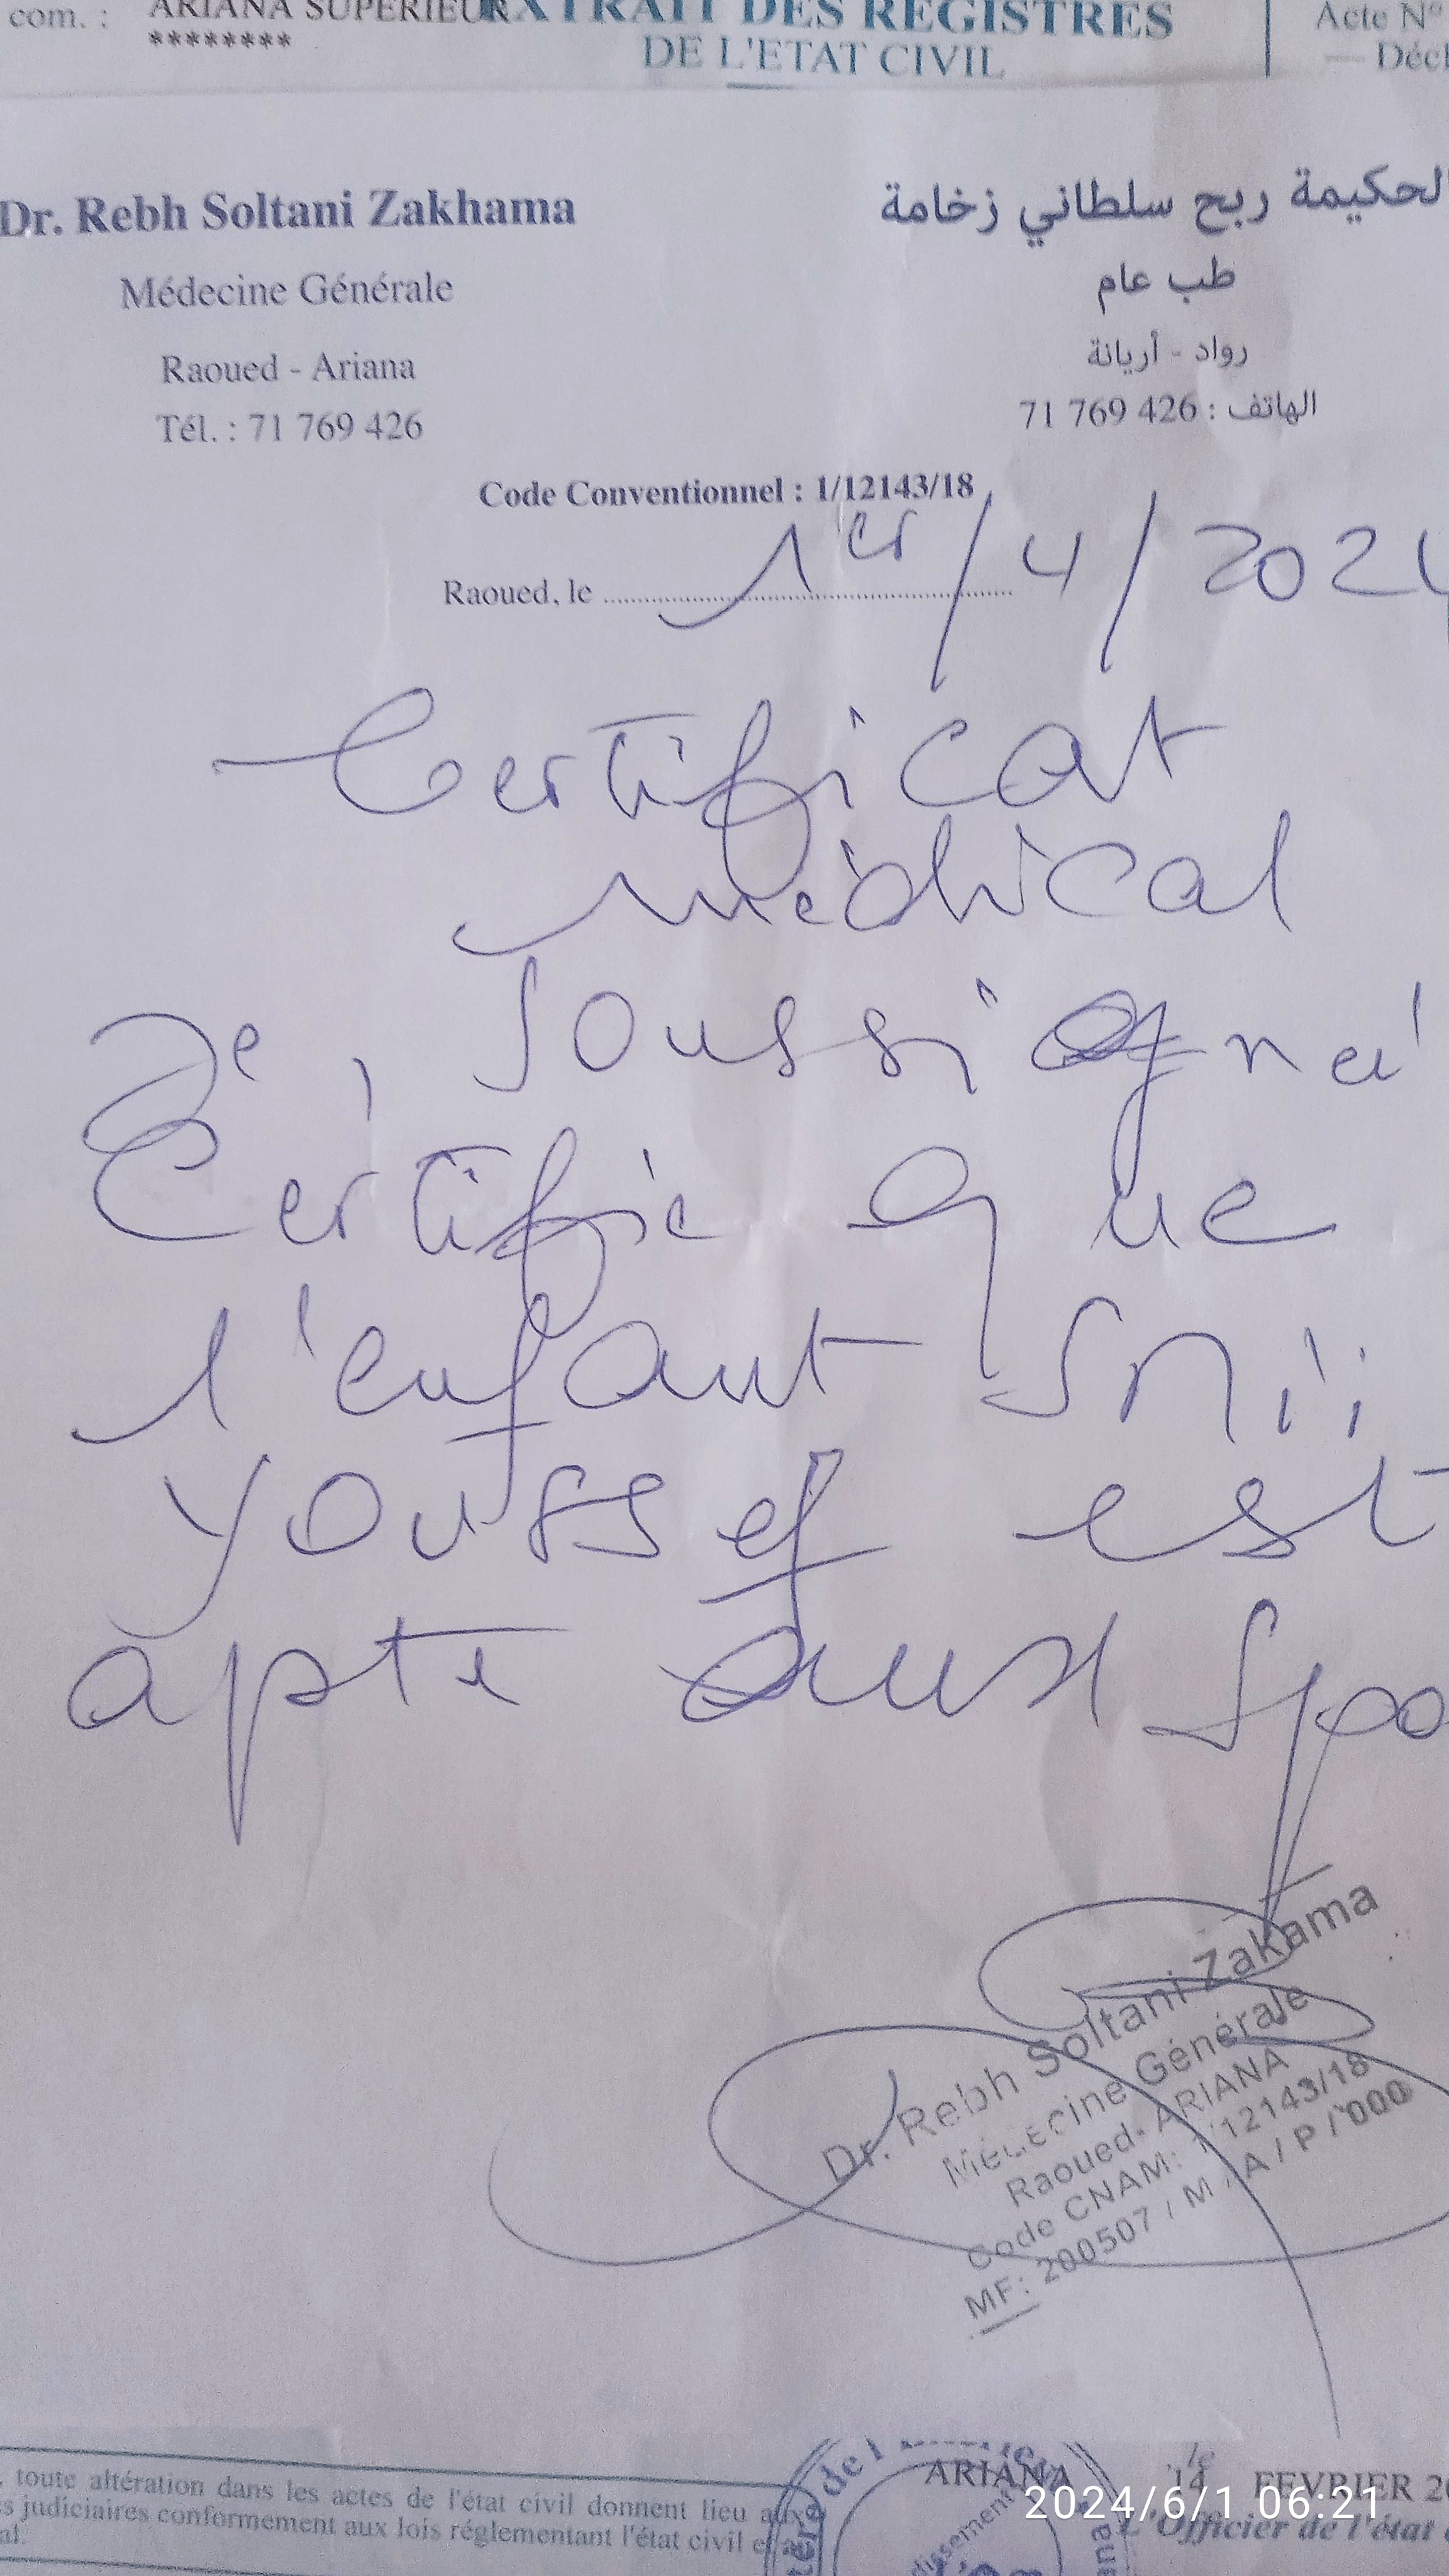 com. : ARIANA SUPERIEUR
********
EXTRAIT DES REGISTRES
DE L'ETAT CIVIL
Acte N°
— Décl
Dr. Rebh Soltani Zakhama
Médecine Générale
Raoued - Ariana
Tél. : 71 769 426
الحكيمة ربح سلطاني زخامة
طب عام
رواد - أريانة
الهاتف : 71 769 426
Code Conventionnel : 1/12143/18
Raoued, le 1er/4/2024
Certificat
médical
Je, soussigné
Certifie que
l'enfant
Youssef est
apte aux spo
Dr. Rebh Soltani Zakama
Médecine Générale
Raoued- ARIANA
Code CNAM: 1/12143/18
MF: 200507 / M / A / P / 000
, toute altération dans les actes de l'état civil donnent lieu aux
s judiciaires conformement aux lois réglementant l'état civil et
al.
ARIANA le 14 FEVRIER 20
L'Officier de l'état
2024/6/1 06:21